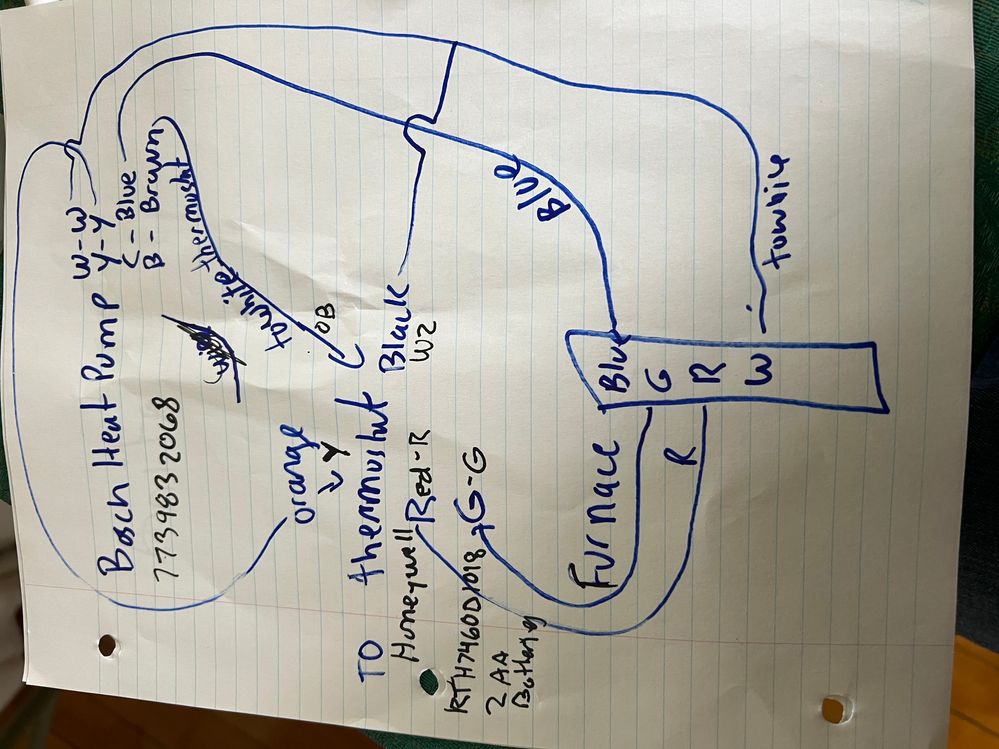 Bosch Heat Pump
7739832068
W-W
Y-Y
C-Blue
B-Brown
to white thermostat
OB
Orange
Y
TO thermostat
Black
W2
Honeywell
Red-R
RTH7460D1018
G-G
2 AA
Batteries
Blue
Furnace
Blue
G
R
W
R
to white